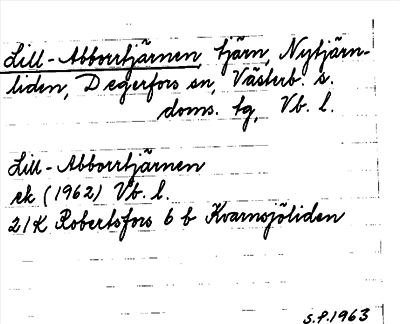 Lill-Abborrtjärnen, tjärn, Nytjärn-
liden, Degerfors sn, Västerb. s.
doms. tg, Vb. l.
Lill-Abborrtjärnen
ek (1962) Vb. l.
21K Robertsfors 6 b Kvarnsjöliden
S.P.1963